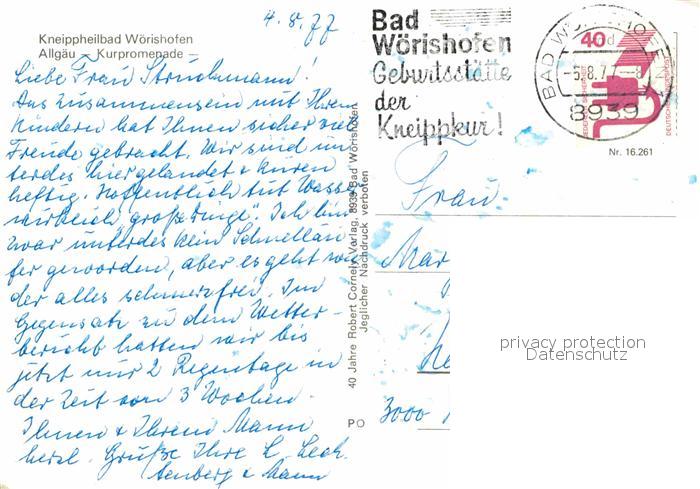 4.8.77
Kneippheilbad Wörishofen
Allgäu — Kurpromenade —
Liebe Frau Struckmann!
Das Zusammensein mit Ihren
Kindern hat Ihnen sicher viel
Freude gebracht. Wir sind un
terdes hier gelandet & kuren
heftig. Hoffentlich tut Wasser
wirklich „große Dinge". Ich bin
zwar unterdes kein Schnelläu
fer geworden, aber es geht wie
der alles schmerzfrei. Im
Gegensatz zu dem Wetter-
bericht hatten wir bis
jetzt nur 2 Regentage in
der Zeit von 3 Wochen.
Ihnen & Ihrem Mann
herzl. Grüße Ihre L. Lech
tenberg & Mann
40 Jahre Robert Cornely Verlag, 8939 Bad Wörishofen
Jeglicher Nachdruck verboten
PO
Bad
Wörishofen
Geburtsstätte
der
Kneippkur!
BAD WÖRISHOFEN
8939
40
DEUTSCHE BUNDESPOST
Nr. 16.261
Frau
Mar
3000
privacy protection
Datenschutz